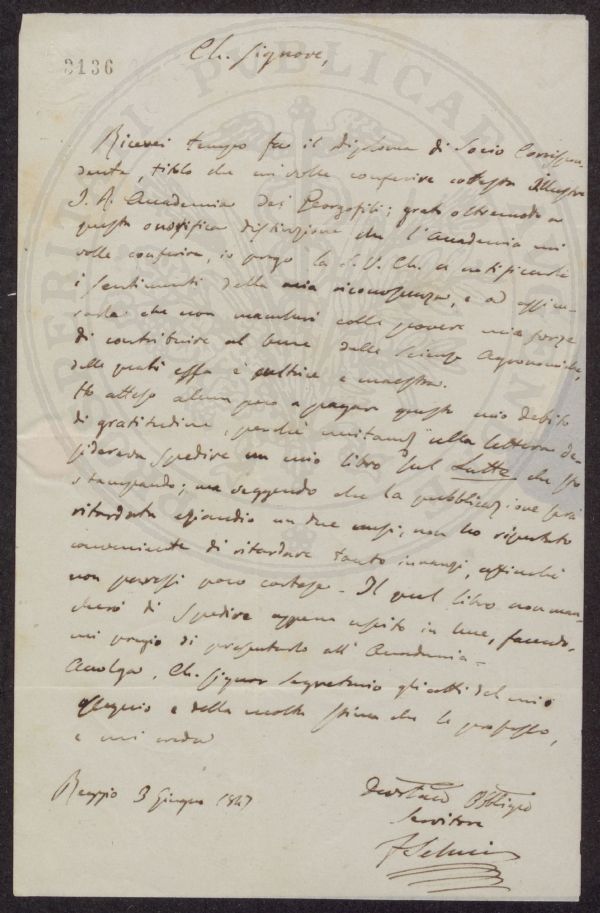 3136
Ch. Signore,
Ricevei tempo fa il diploma di Socio Corrispon-
dente, titolo che mi volle conferire cotesta Illustre
I. R. Accademia dei Georgofili; grato oltremodo a
questa onorifica distinzione che l'Accademia mi
volle conferire, io prego la S. V. Ch. a notificarle
i sentimenti della mia riconoscenza, e ad assicu-
rarla che non mancherò colle povere mie forze
di contribuire al bene delle Scienze Agronomiche,
delle quali essa è cultrice e maestra.
Ho atteso alcun poco a pagare questo mio debito
di gratitudine, perchè unitamte alla lettera de-
siderava spedire un mio libro sul Latte che sto
stampando; ma veggendo che la pubblicazione sarà
ritardata eziandio un due mesi, non ho riputato
conveniente di ritardare tanto innanzi, affinchè
non paressi poco cortese - Il qual libro non man-
cherò di spedire appena uscito in luce, facendo-
mi pregio di presentarlo all'Accademia -
Accolga, Ch. Signor Segretario gli atti del mio
ossequio e della molta stima che le professo,
e mi creda
Reggio 3 Giugno 1847
Devotmo Obbligmo
Servitore